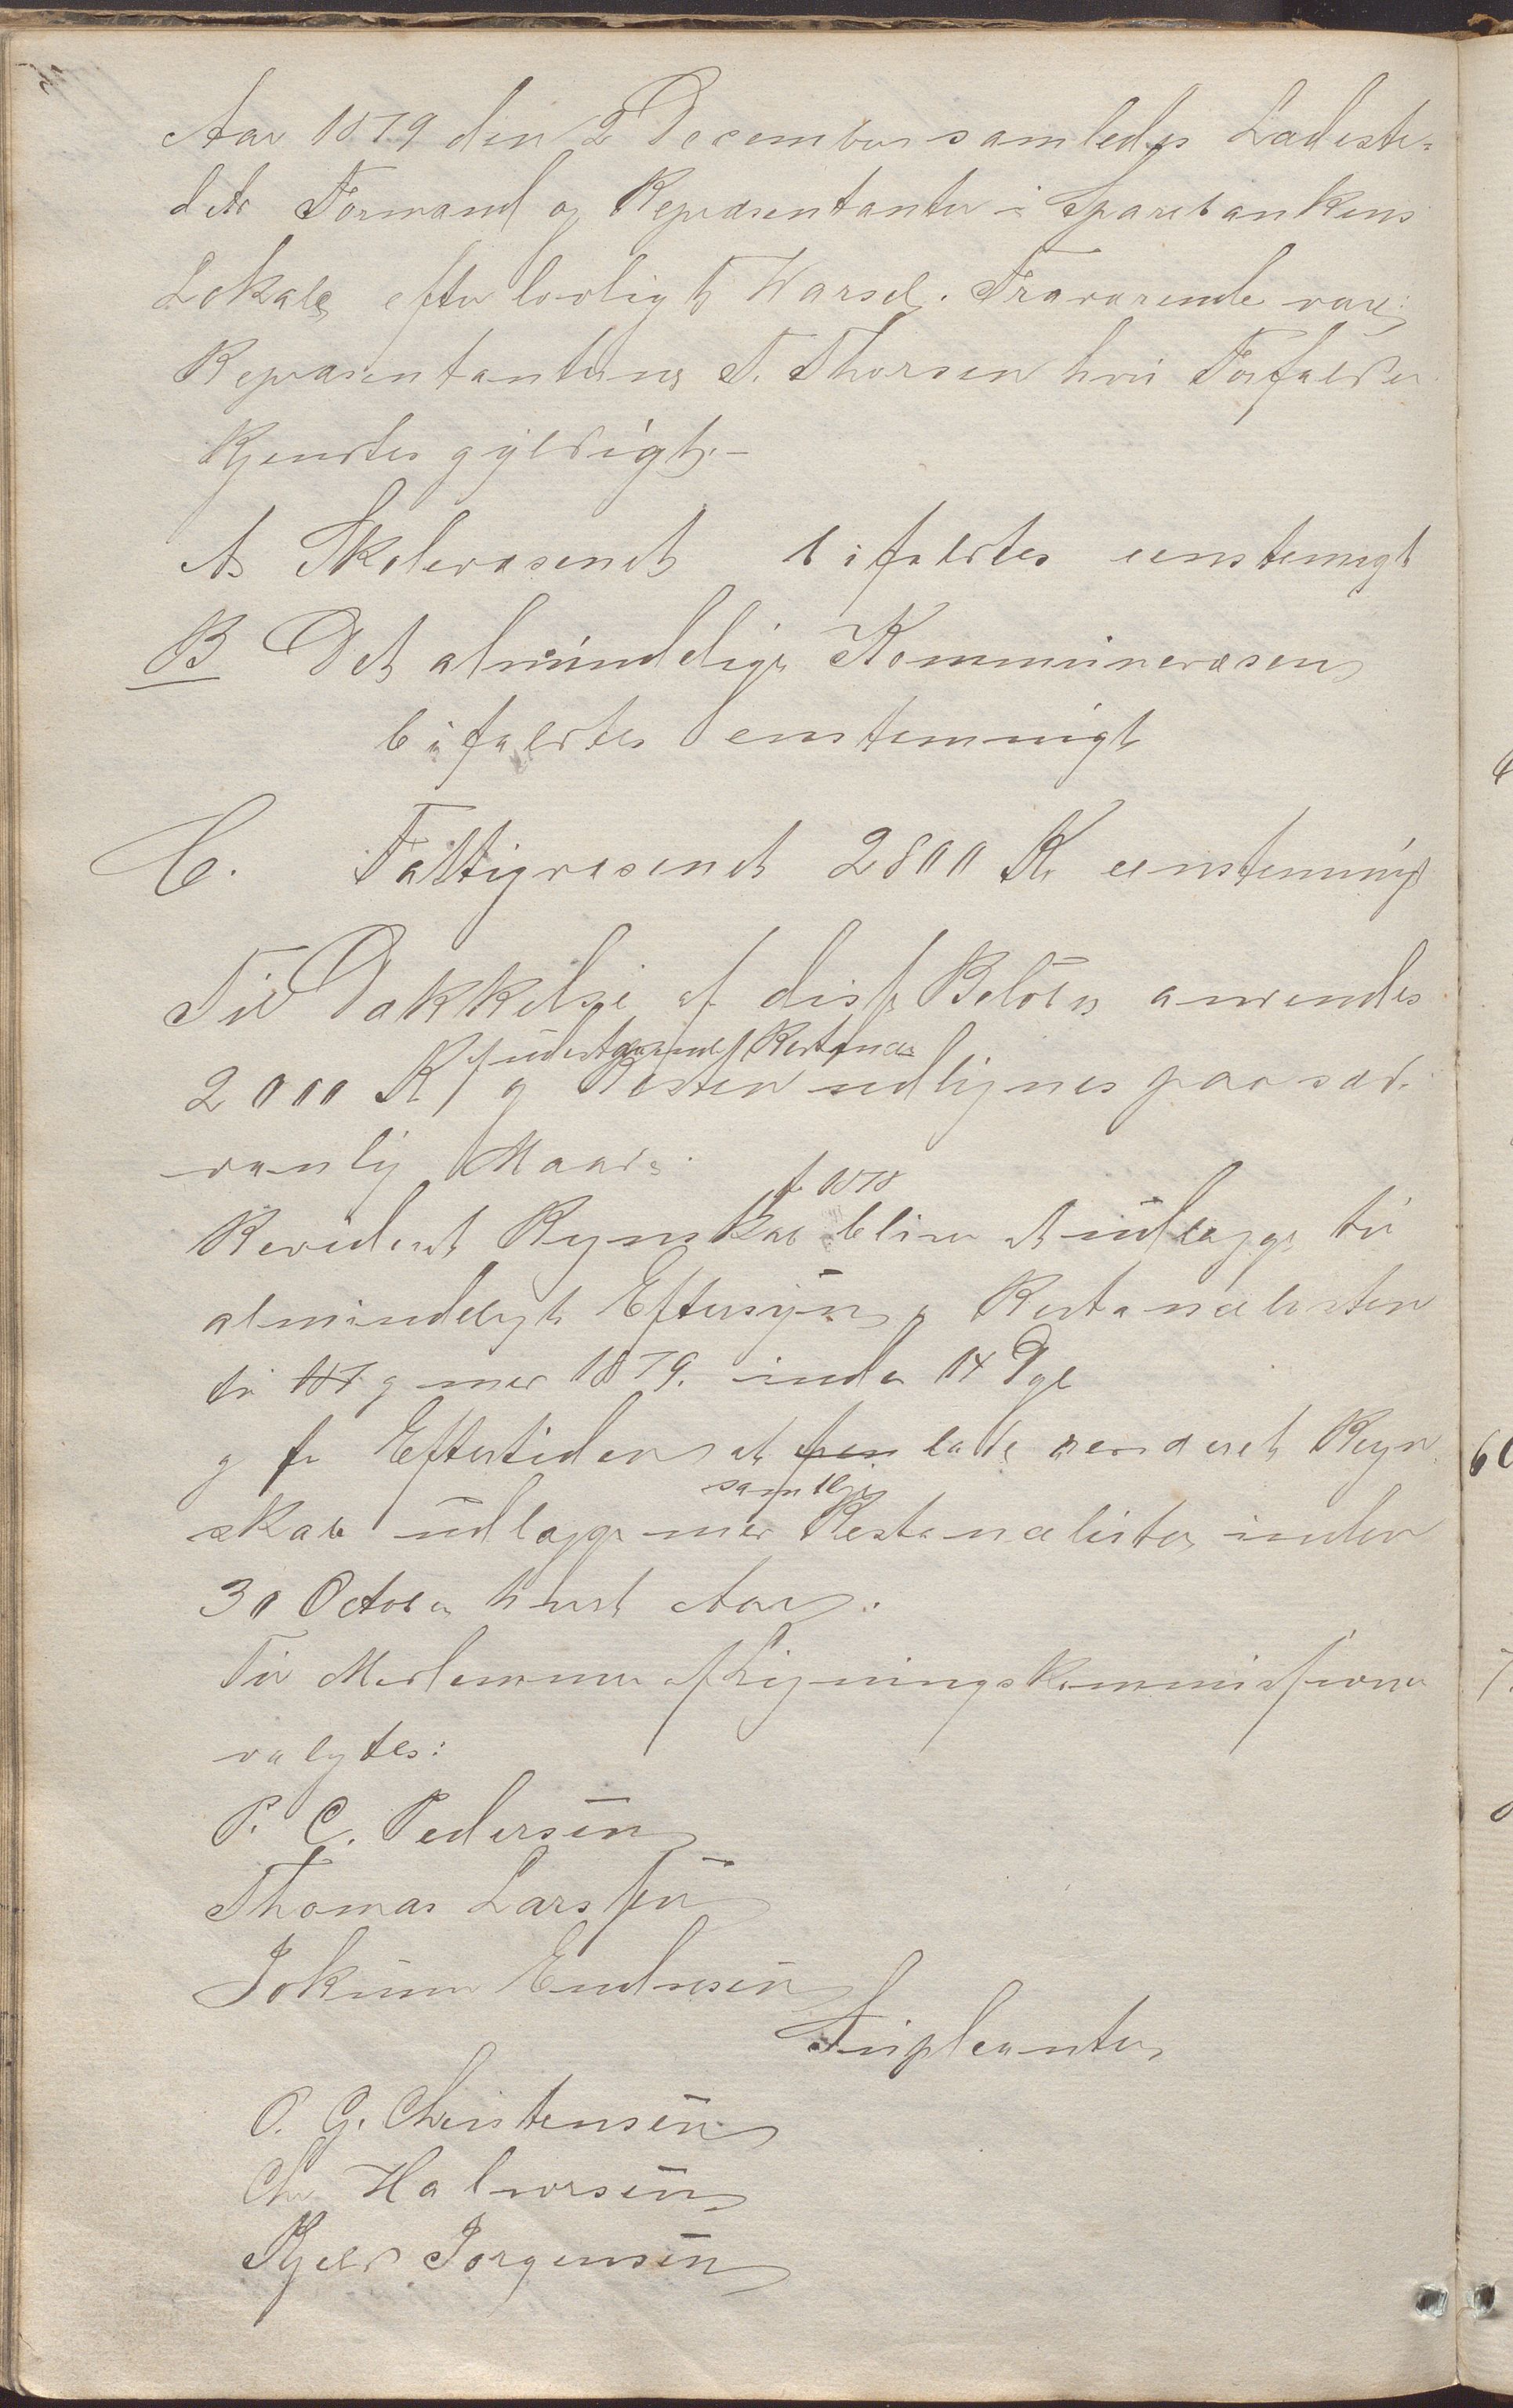 Aar 1879 den 2 December samledes Ladeste-
dets Formænd og Repræsentanter i Sparebankens
Lokale efter lovligt Varsel. Fraværende var:
Repræsentanterne T. Thorsen hvis Forfald er
kjendtes gyldigt.-
A Skolevæsenet bifaldtes eenstemigt
B Det almindelige Kommunevæsen
bifaldtes eenstemmigt
C. Fattigvæsenet 2800 Kr eenstemmigt
Til Dækkelse af disse Beløb anvendes
af udestaaende Restancer
2000 Kr og Resten udlignes paa sæd-
vanlig Maade.
f 1878
Revideret Regnskab bliver at udlægge til
almindeligt Eftersyn og Restancelisten
til og med 1879. inden 14 Dge
og for Eftertiden at lade revideret Regn
samtlige
skab udlægge med Restancelister inden
30 October hvert Aar.
Til Medlemmer af Ligningskommissionen
valgtes:
P. C. Pedersen
Thomas Larssen
Jokum Endresen
Supleanter
O. G. Christensen
Chr Halvorsen
Kjeld Jørgensen